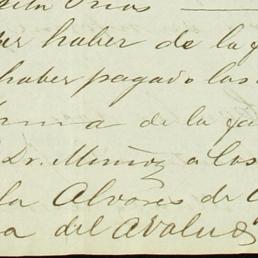 haber de la
haber pagado las
de la
Dr. Muñoz a los
la Alvares de
del Avaluo